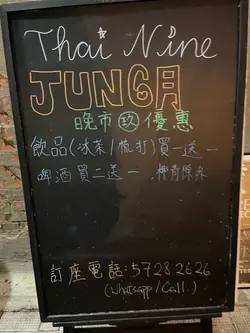 Thai Nine
JUNGA
晚市玖優惠
飲品(冰茶/梳打)買一送一
啤酒買二送一,押青除外
訂座電話:57282626
(Whatsapp/Call)